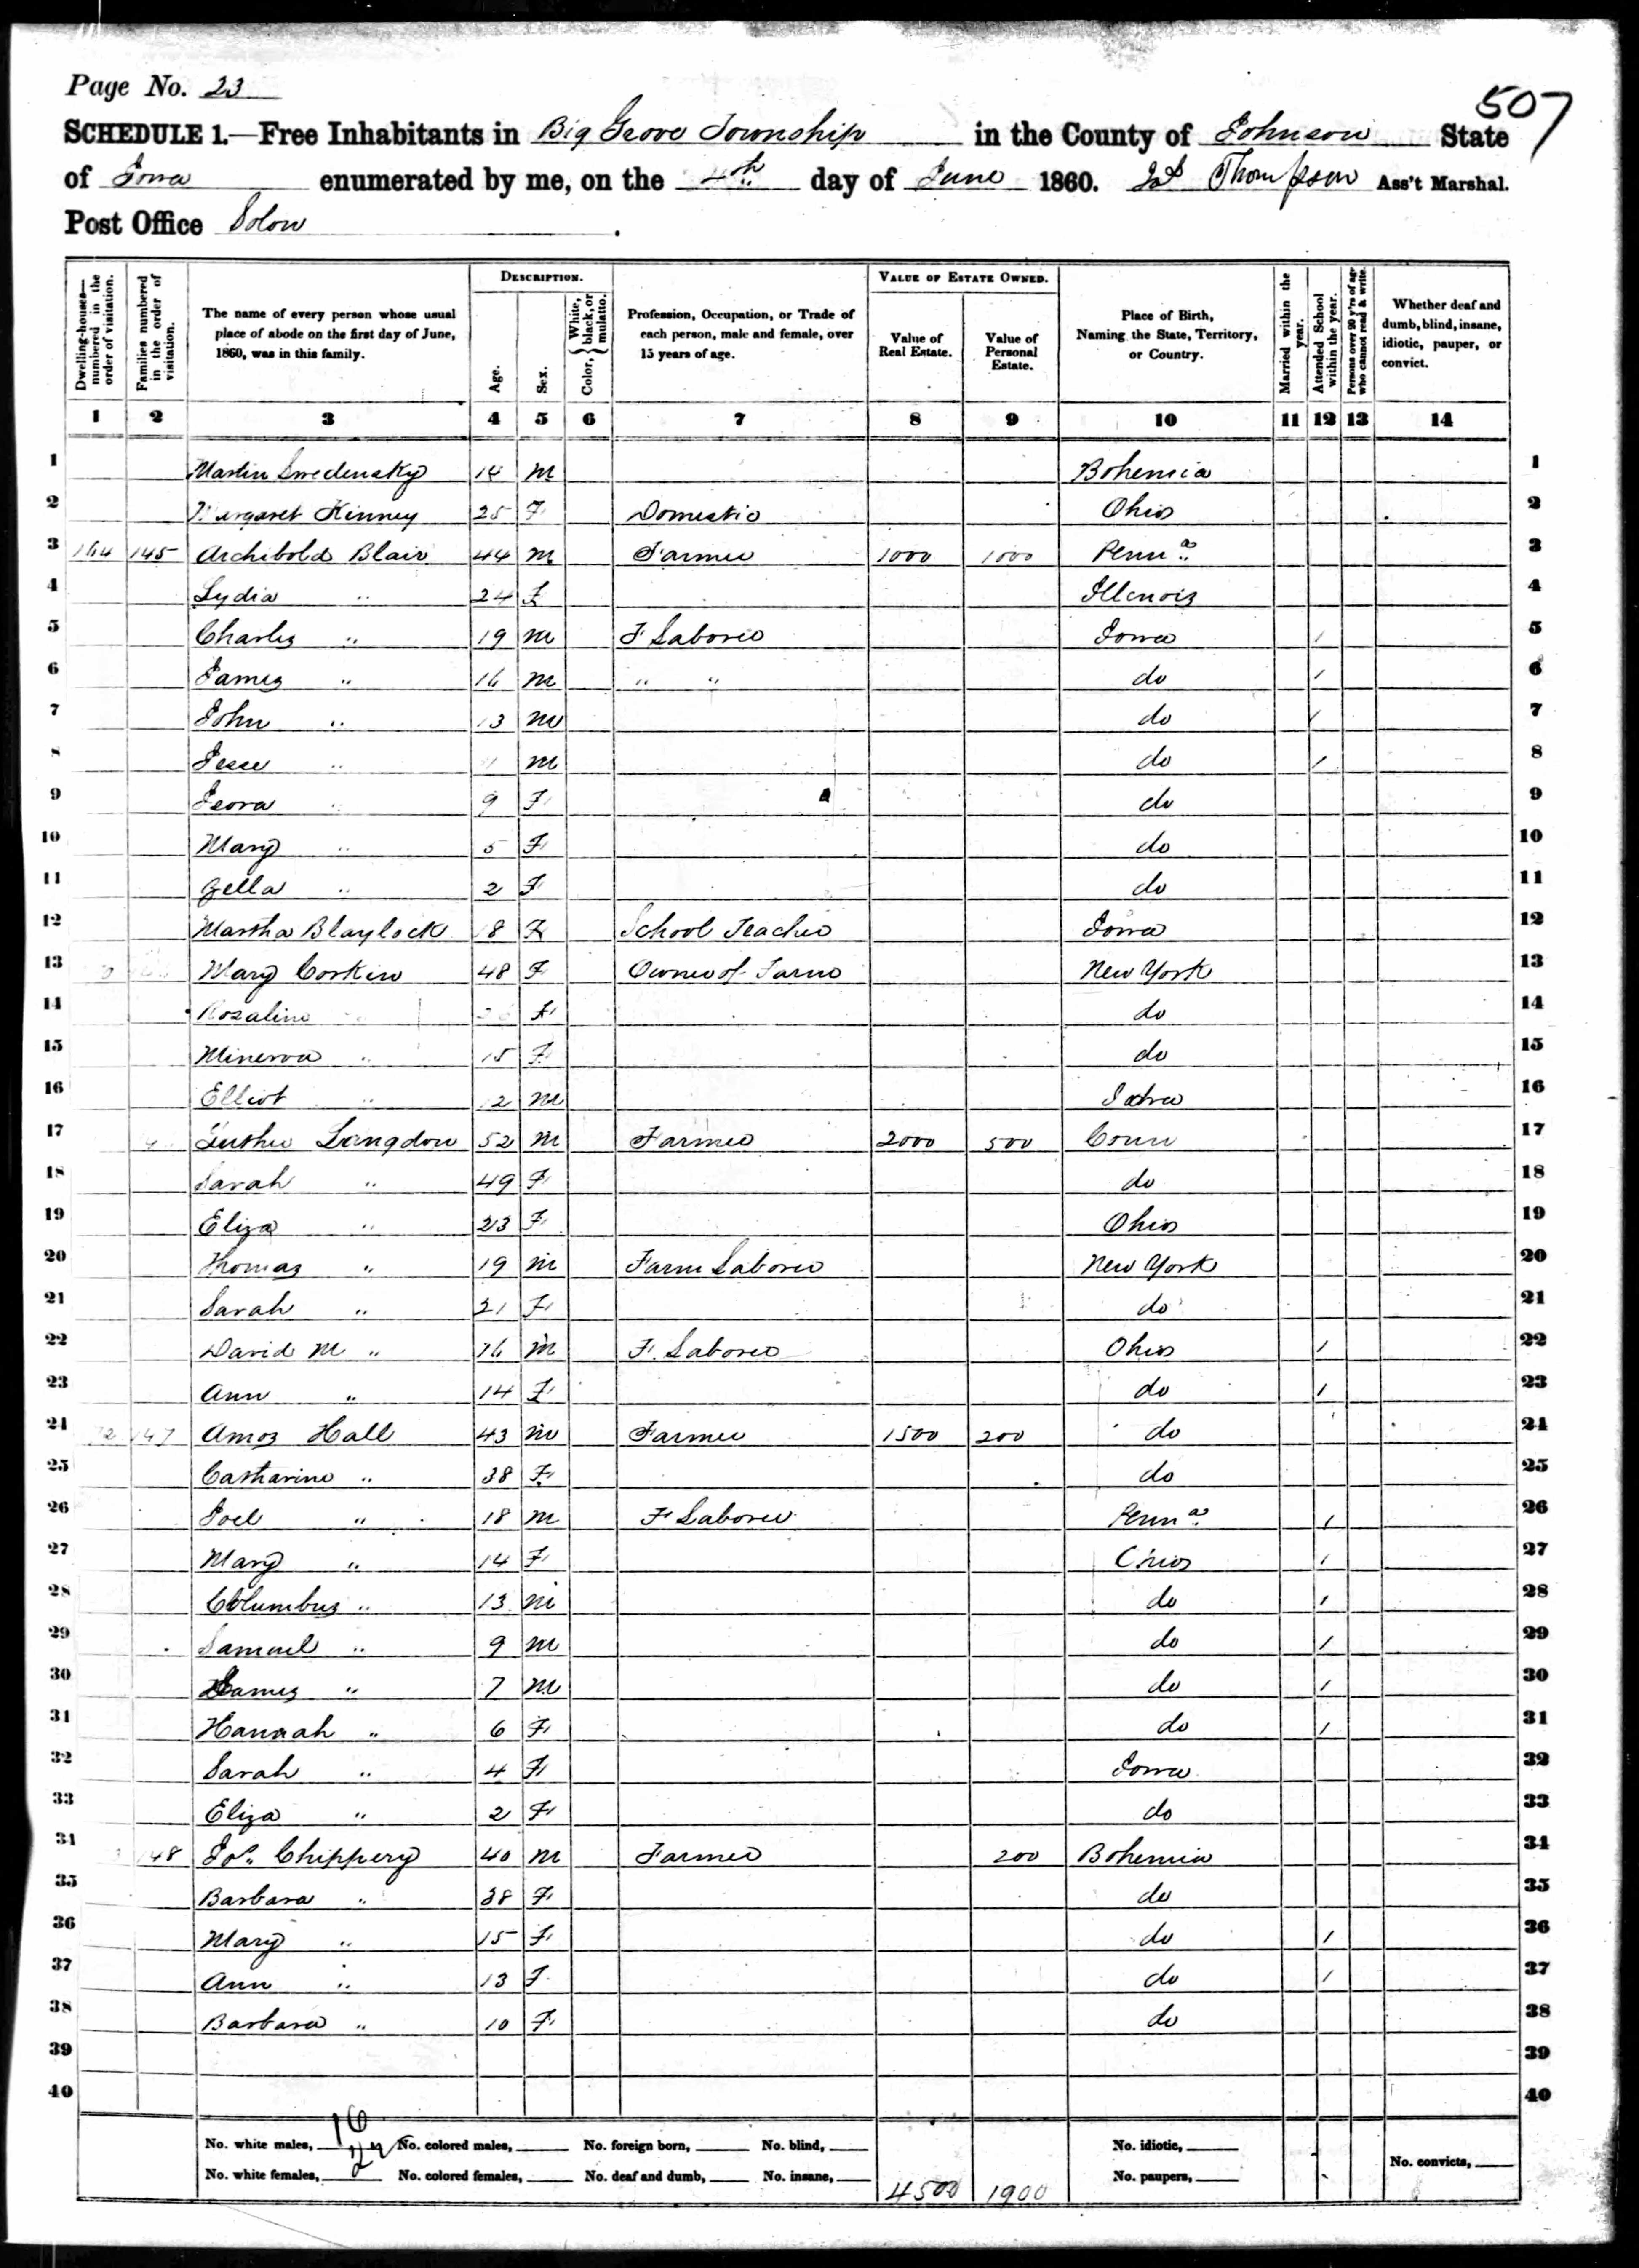 Page No. 23
507
SCHEDULE 1.—Free Inhabitants in Big Grove Township in the County of Johnson State
of Iowa enumerated by me, on the 4th day of June 1860. Thompson Ass't Marshal.
Post Office Solon
Dwelling-houses—numbered in the order of visitation.
Families numbered in the order of visitation.
The name of every person whose usual place of abode on the first day of June, 1860, was in this family.
DESCRIPTION.
Age.
Sex.
Color, { White, black, or mulatto.
Profession, Occupation, or Trade of each person, male and female, over 15 years of age.
VALUE OF ESTATE OWNED.
Value of Real Estate.
Value of Personal Estate.
Place of Birth, Naming the State, Territory, or Country.
Married within the year.
Attended School within the year.
Persons over 20 y'rs of age who cannot read & write.
Whether deaf and dumb, blind, insane, idiotic, pauper, or convict.
1 2 3 4 5 6 7 8 9 10 11 12 13 14
1 Martin 14 m Bohemia 1
2 Margaret Kinney 25 F Domestic Ohio 2
3 164 145 Archibold Blair 44 m Farmer 1000 1000 Penna 3
4 Lydia " 24 F Illinois 4
5 Charles " 19 m F Laborer Iowa / 5
6 James " 16 m " " do / 6
7 John " 13 m do / 7
8 Jesse " 11 m do / 8
9 " 9 F do 9
10 Mary " 5 F do 10
11 " 2 F do 11
12 Martha Blaylock 18 F School Teacher Iowa 12
13 Mary Corkin 48 F Owner of Farm New York 13
14 Rozaline F do 14
15 Minerva " 15 F do 15
16 Elliot " 12 m Iowa 16
17 Luther Langdon 52 m Farmer 2000 500 Conn 17
18 Sarah " 49 F do 18
19 Eliza " 23 F Ohio 19
20 Thomas " 19 m Farm Laborer New York 20
21 Sarah " 21 F do 21
22 David M " 16 m F. Laborer Ohio / 22
23 Ann " 14 F do / 23
24 147 Amos Hall 43 m Farmer 1500 200 do 24
25 Catharine " 38 F do 25
26 Joel " 18 m F Laborer Penna / 26
27 Mary " 14 F Ohio / 27
28 Columbus " 13 m do / 28
29 Samuel " 9 m do / 29
30 James " 7 m do / 30
31 Hannah " 6 F do / 31
32 Sarah " 4 F Iowa 32
33 Eliza " 2 F do 33
34 148 Jos. Chippery 40 m Farmer 200 Bohemia 34
35 Barbara " 38 F do 35
36 Mary " 15 F do / 36
37 Ann " 13 F do / 37
38 Barbara " 10 F do 38
39 39
40 40
No. white males, 16 No. colored males, No. foreign born, No. blind, No. idiotic,
No. white females, No. colored females, No. deaf and dumb, No. insane, 4500 1900 No. paupers, No. convicts,